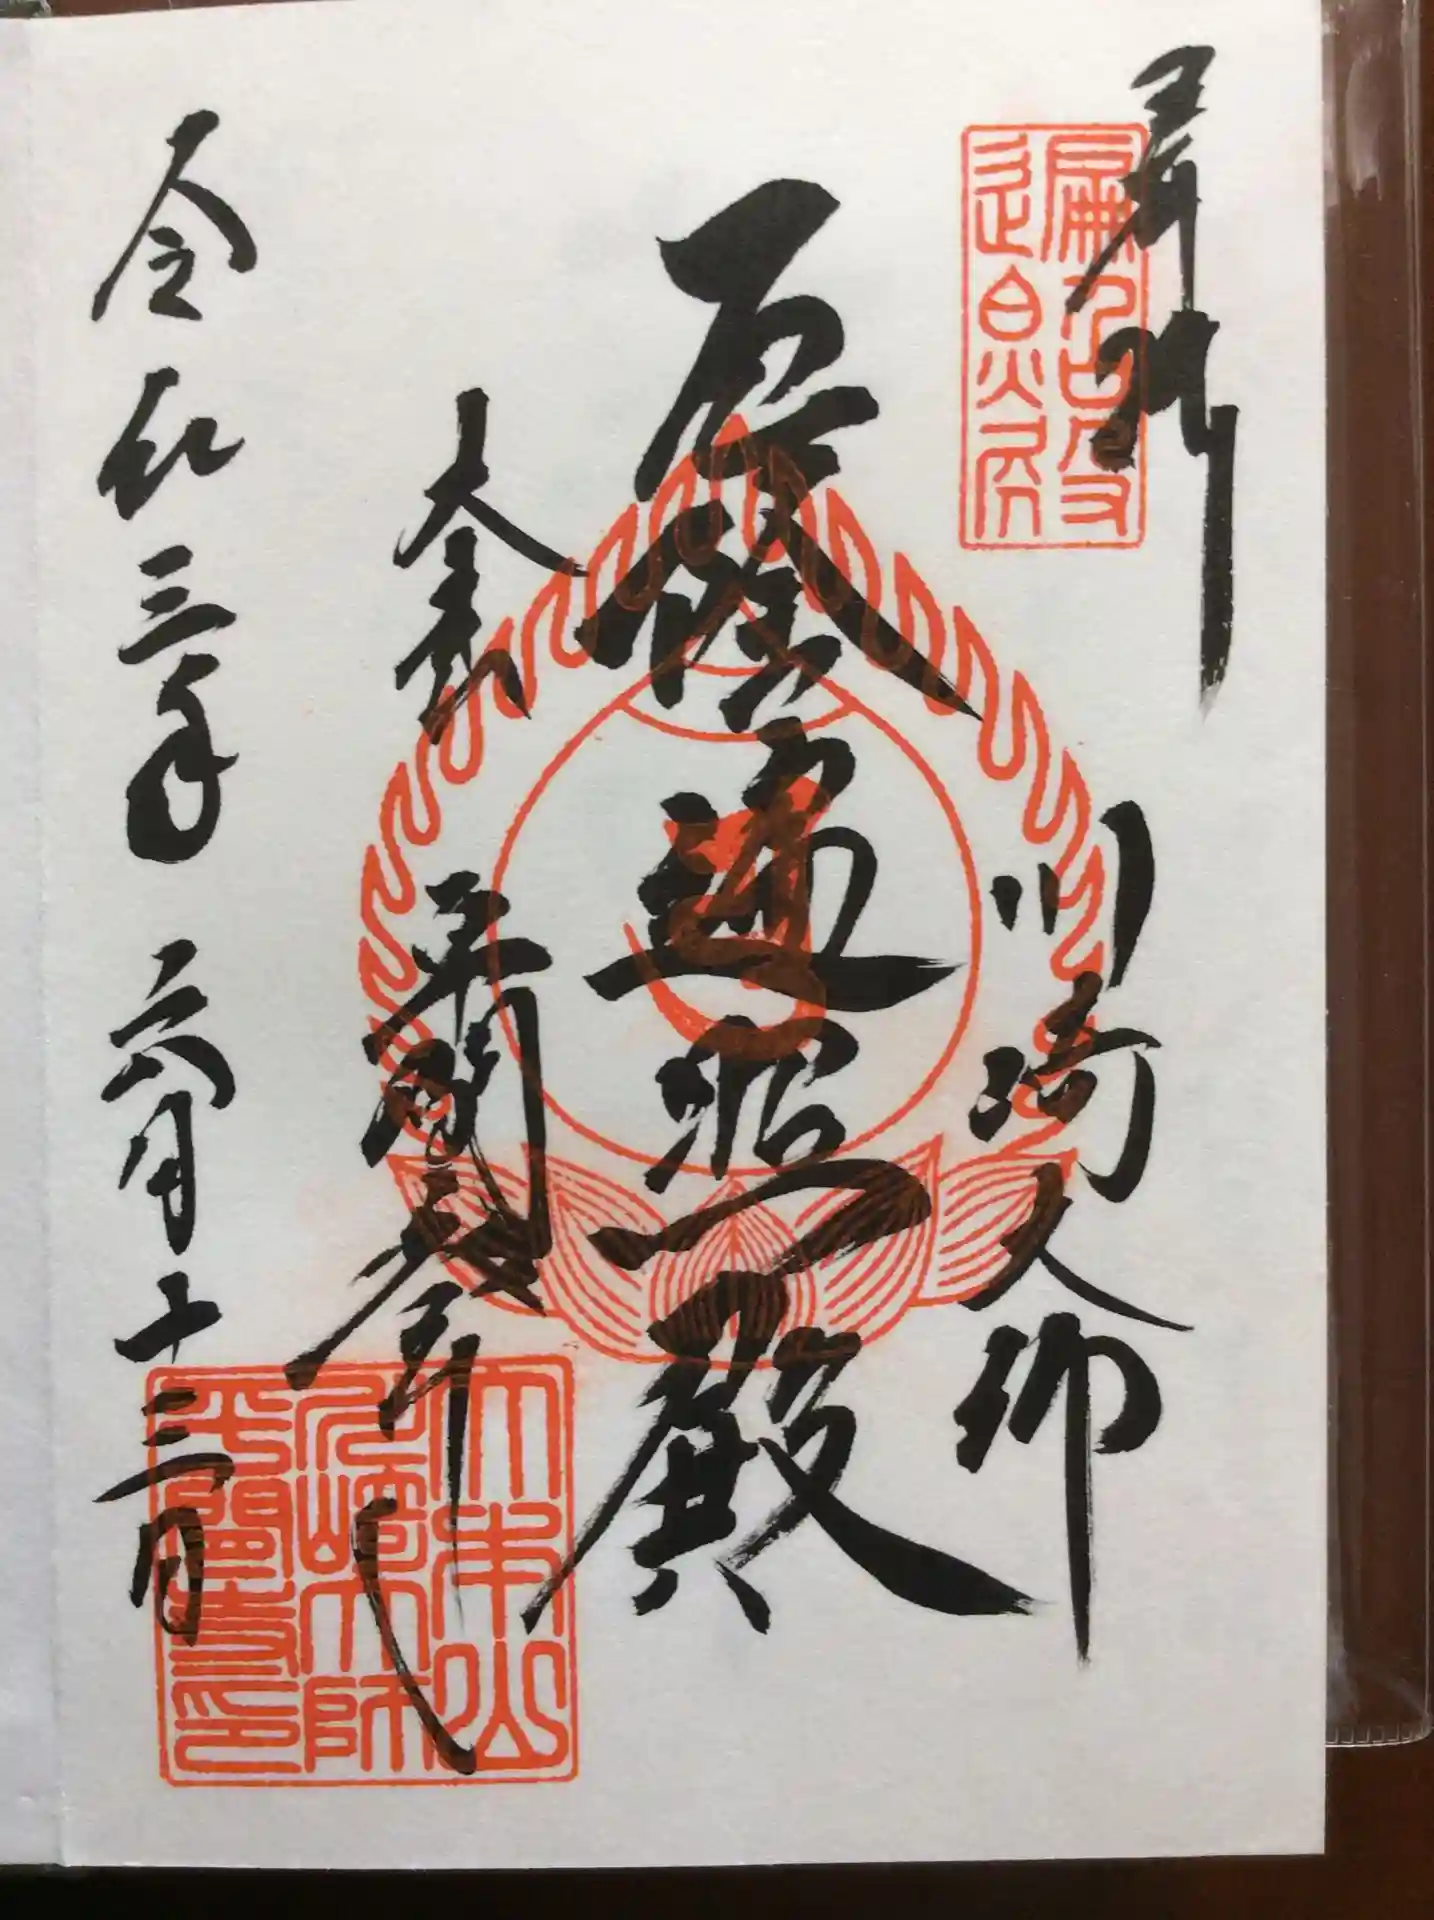 奉拝
川崎大師
遍照殿
厄除遍照殿
大本山
平間寺
令和三年六月十三日
大本山
川崎大師
平間寺印